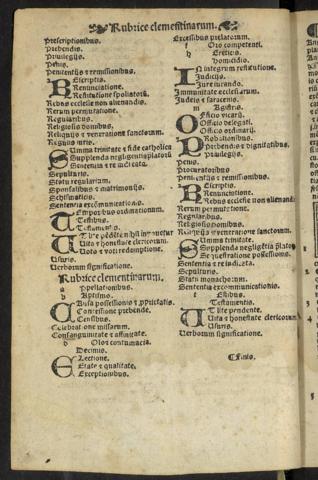 Rubrice clementinarum.
Prescriptionibus.
Prebendis.
Priuilegijs.
Penis.
Penitentijs ⁊ remissionibus.
Escriptis.
Renunciatione.
Restitutione spoliatorũ.
Rebus ecclesie non alienandis.
Rerum permutatione.
Regularibus.
Religiosis domibus.
Reliquijs ⁊ veneratione sanctorum.
Regulis iuris.
Summa trinitate ⁊ fide catholica
Supplenda negligentia platorũ
Sententia ⁊ re iudicata.
Sepulturis.
Statu regularium.
Sponsalibus ⁊ matrimonijs.
Schismaticis.
Sententia excommunicationis.
Temporibus ordinationum.
Testibus.
Testamentis.
Uita ⁊ honestate clericorum.
Uoto ⁊ voti redemptione.
Usuris.
Uerborum significatione.
Rubrice clementinarum.
a ppellationibus.
b Aptismo.
Causa possessionis ⁊ pprietatis.
Concessione prebende.
Censibus.
Celebratione missarum.
Consanguinitate ⁊ affinitate.
d Olo ⁊ contumacia.
Decimis.
Electione.
Etate ⁊ qualitate.
Exceptionibus.
Excessibus prelatorum.
f Oro competenti.
h Ereticis.
Homicidio.
In integrum restitutione.
Iudicijs.
Iureiurando.
Immunitate ecclesiarum.
Iudeis ⁊ saracenis.
m Agistris.
Officio vicarij.
Officio delegati.
Officio ordinarij.
Probationibus.
Prebendis ⁊ dignitatibus.
Priuilegijs.
Penis.
Procuratoribus
Penitentijs ⁊ remissionibus.
Escriptis.
Renunciatione.
Rebus ecclesie non alienandis
Rerum permutatione.
Regularibus.
Religiosis domibus.
Reliquijs ⁊ veneratione sanctorum.
Summa trinitate.
Supplenda negligẽtia platoꝝ
Sequestratione possessionis.
Sententia ⁊ re iudicata.
Sepulturis.
Statu monachorum.
Sententia excommunicationis.
t Estibus.
Testamentis.
Ut lite pendente.
Uita ⁊ honestate clericorum
Usuris.
Uerborum significatione.
Finis.